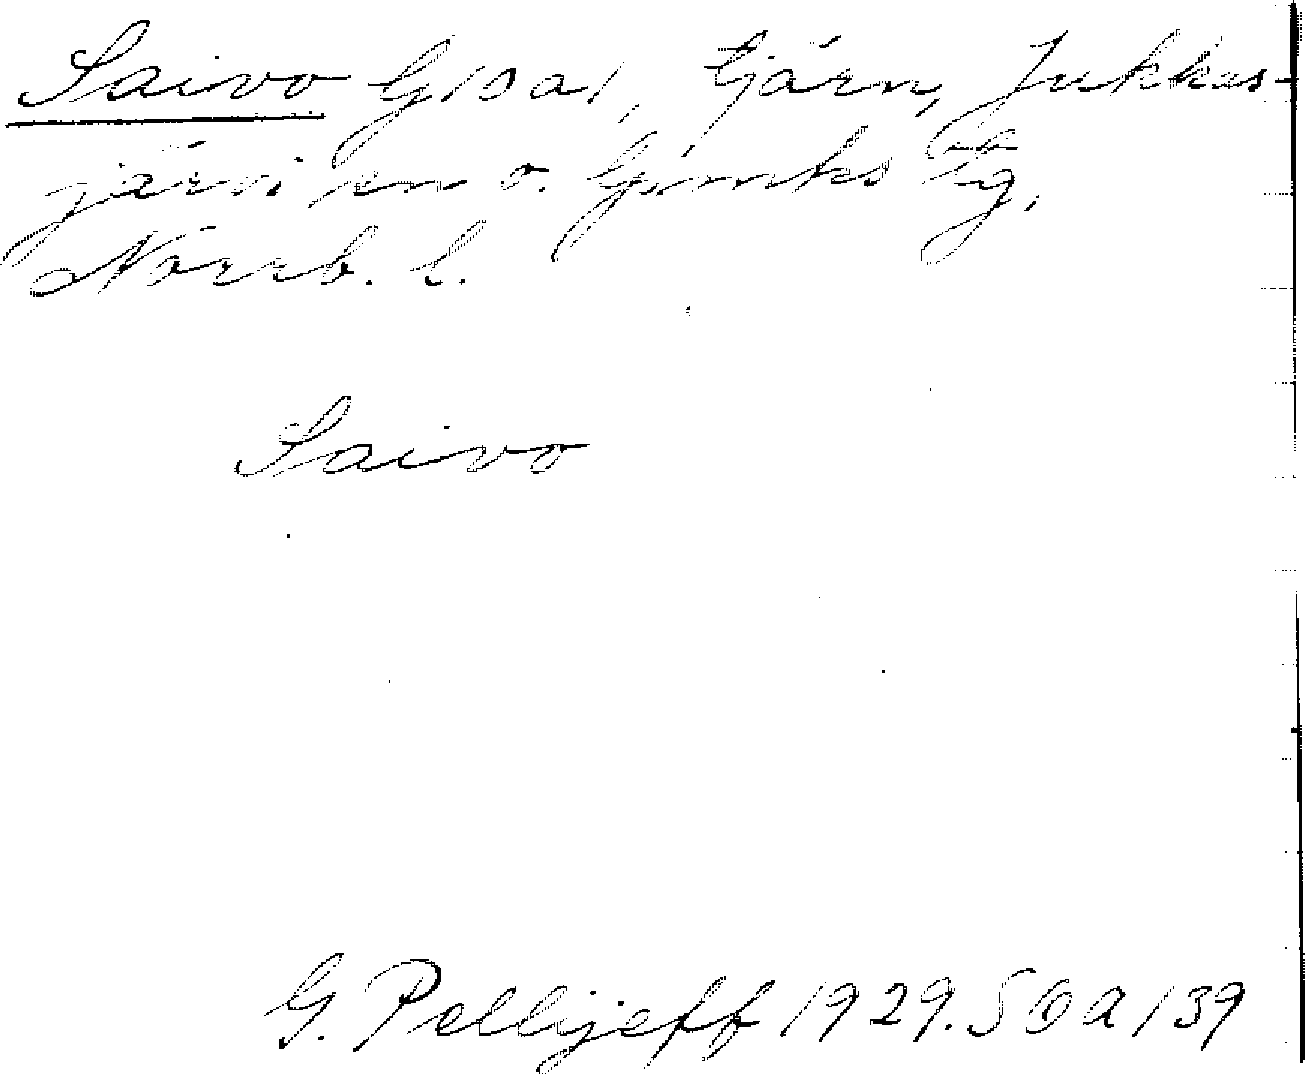 Saivo G10a1, tjärn, Jukkas-
järvi sn o. Gmks tg,
Norrb. l.
Saivo
G. Pellijeff 1929. SOA 139